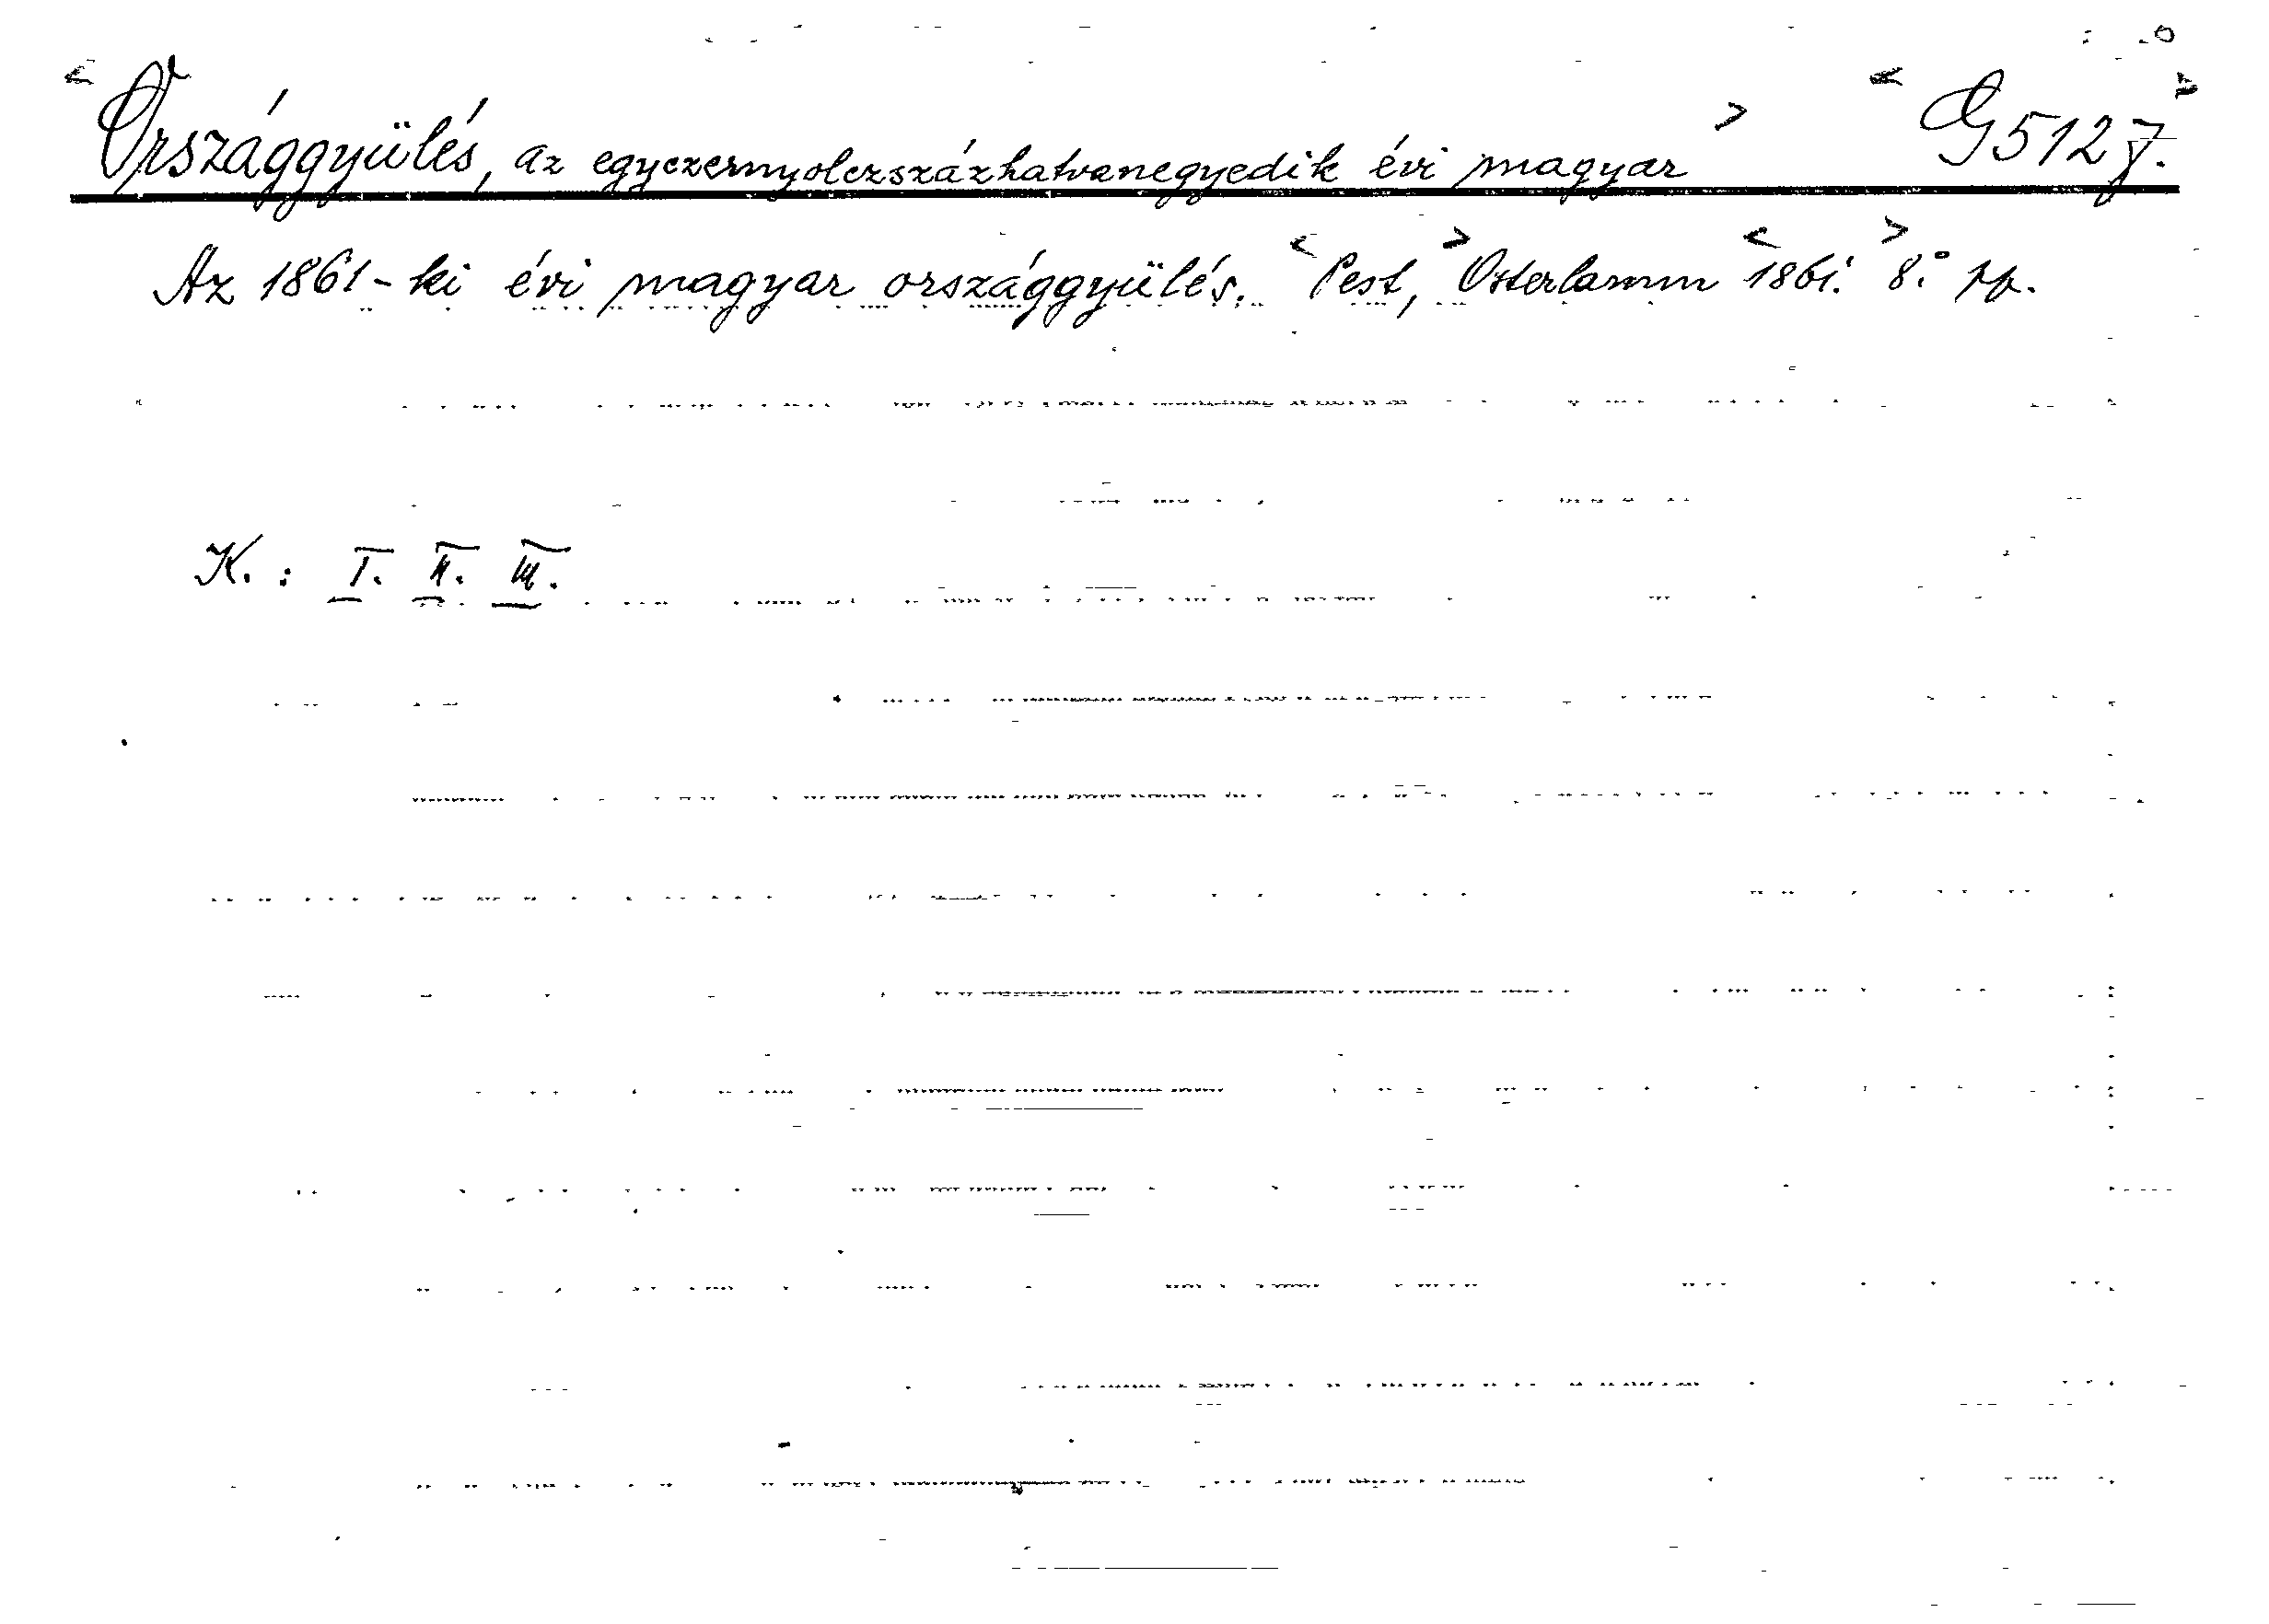 <Országgyülés, az egyezernyolczszázhatvanegyedik évi magyar> <G 512 j.>
Az 1861-ki évi magyar országgyülés. <Pest,> Osterlamm <1861.> 8.°
K.: I. II. III.